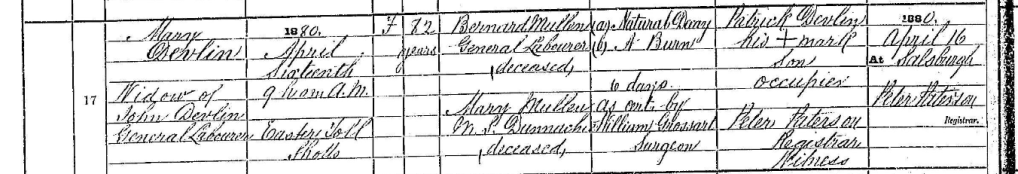 17
Mary
Devlin
Widow of
John Devlin
General Labourer
1880.
April
Sixteenth
9h 0m A.M.
Easter Toll
Shotts
F
82
years
Bernard Mullen
General Labourer
(deceased)
Mary Mullen
M.S. Dunnachie
(deceased)
(a) Natural Decay
(b) A Burn
10 days.
As cert. by
William Grossart
Surgeon
Patrick Devlin
his + mark
Son
occupier
Peter Paterson
Registrar
Witness
1880.
April 16
At Salsburgh
Peter Paterson
Registrar.